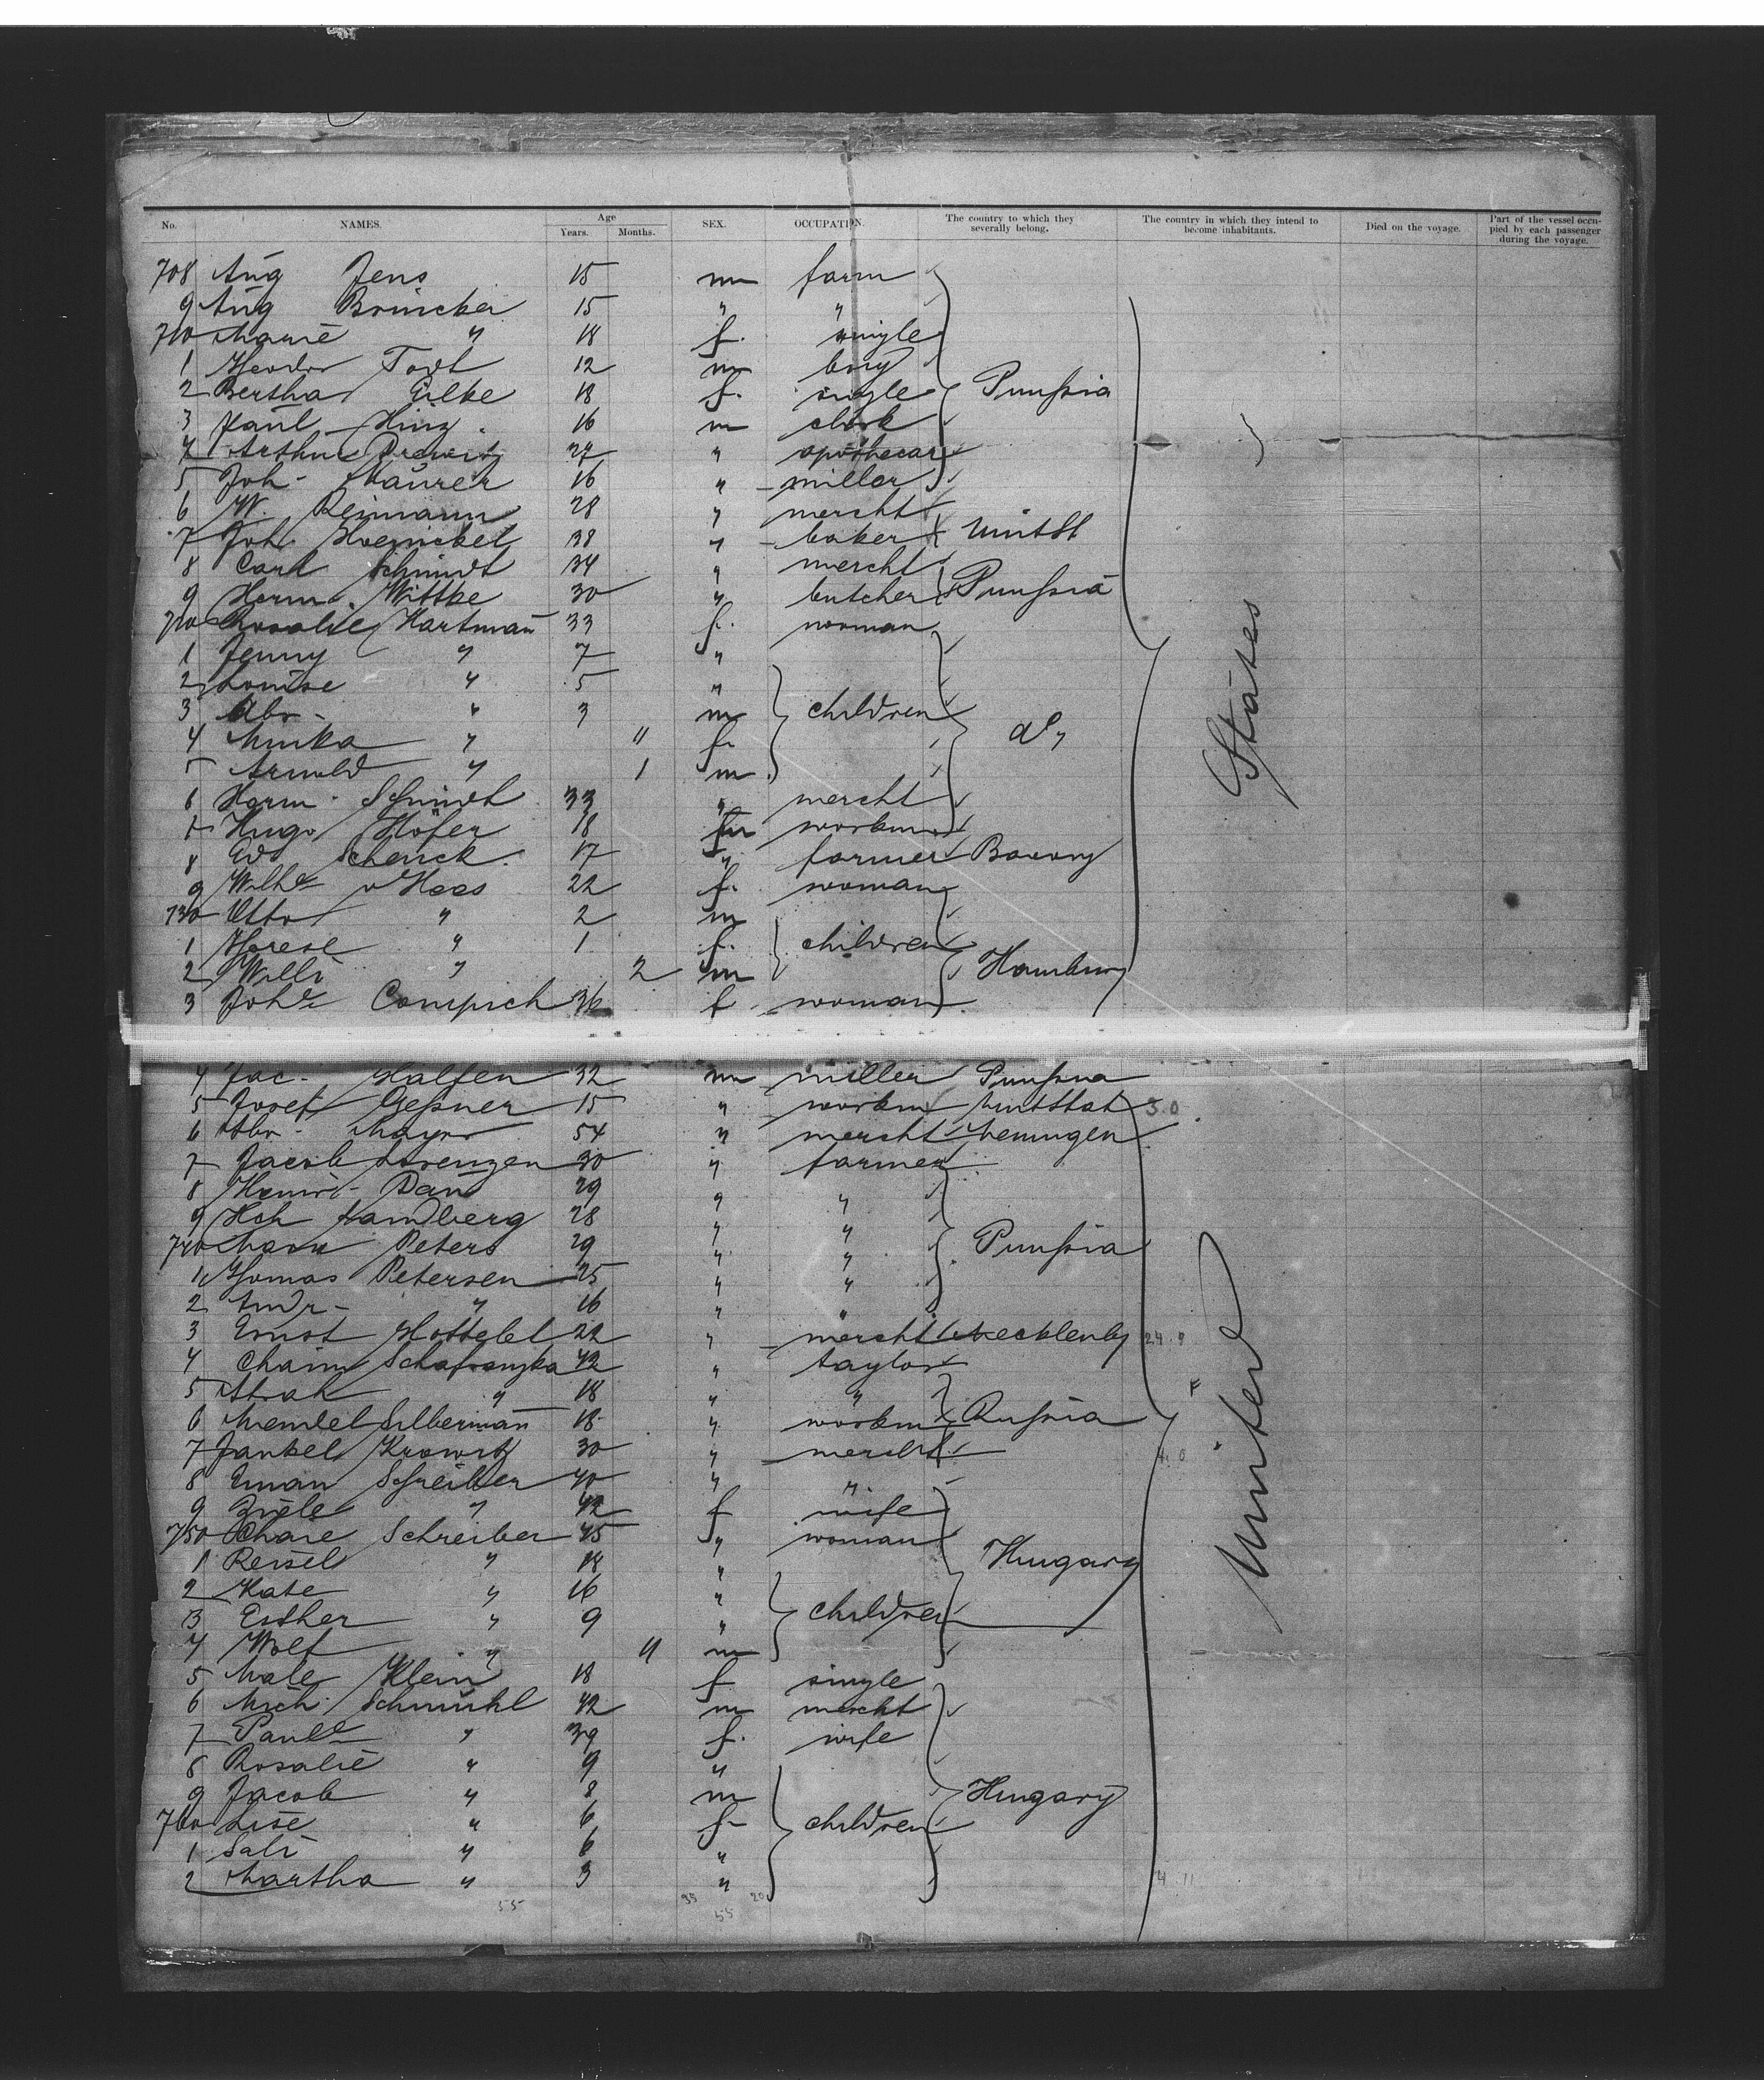 No. NAMES. Age Years. Months. SEX. OCCUPATION. The country to which they severally belong. The country in which they intend to become inhabitants. Died on the voyage. Part of the vessel occupied by each passenger during the voyage.
708 Aug Jens 15 m farm
9 Aug Brincker 15 " "
710 Marie " 18 f. single
1 Theodor Todt 12 m boy
2 Bertha Gilke 18 f. single Prussia
3 Paul Hinz. 16 m clerk
4 Arthur 27 " apothecar
5 Joh- Maurer 16 " miller
6 W. Reimann 28 " mercht
7 Joh. Hoenickel 38 " baker Unit St
8 Carl Schmidt 34 " mercht
9 Herm. Wittke 30 " butcher Prussia
720 Rosalie Hartmañ 33 f. woman
1 Jenny " 7 "
2 Louise " 5 "
3 Abr- " 3 m children
4 Minka " 11 f- do
5 Arnold " 1 m
6 Herm- Schmidt 33 " mercht
7 Hugo Höfer 18 m workm
8 Ed Schenck. 17 " farmer Bavary
9 Wilhe v Haas 22 f. woman
730 Otto " 2 m
1 Therese " 1 f. children
2 Willi " 2 m Hamburg
3 Johe Compich 36 f woman
4 Jac- Halfen 32 m miller Prussia
5 Josef Gessner 15 " workm Unit Stat
6 Abr- Mayer 54 " mercht Meiningen
7 Jacob Lorenzen 30 " farmer
8 Heinr- Dau 29 " "
9 Hch Landberg 28 " "
740 Marx Peters 29 " " Prussia
1 Thomas Petersen 25 " "
2 Andr- " 16 " "
3 Ernst Hottelet 22 " mercht Mecklenbg
4 Chaim Schafranzka 42 " taylor
5 " 18 " "
6 Mendel Silbermañ 18 " workm Russia
7 Jankel Krawitz 30 " mercht
8 Eman Schreiber 40 " "
9 " 42 f wife
750 Chaie Schreiber 45 " woman
1 Reisel " 18 " Hungary
2 Kate " 16 "
3 Esther " 9 " children
4 Wolf " 11 m
5 Male Klein 18 f single
6 Mich. Schmühl 42 m mercht
7 Paule " 39 f. wife
8 Rosalie " 9 "
9 Jacob " 8 m Hungary
760 Lise " 6 f- children
1 Sali " 6 "
2 Martha " 3 "
United States
55
35 20
55